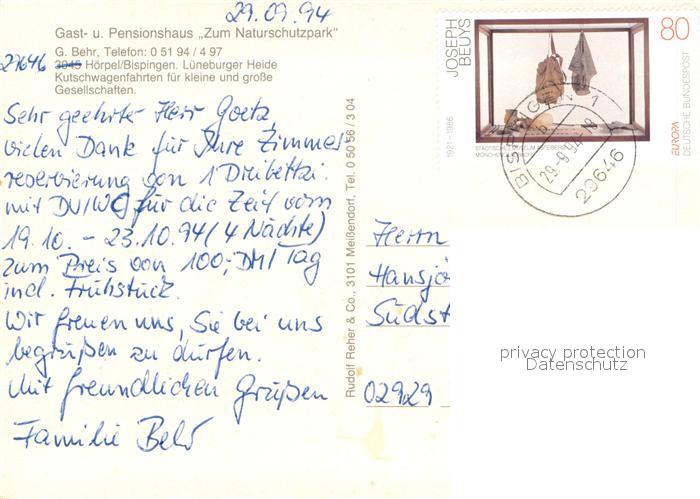 29.09.94
Gast- u. Pensionshaus „Zum Naturschutzpark"
G. Behr, Telefon: 0 51 94 / 4 97
29646 3045 Hörpel/Bispingen. Lüneburger Heide
Kutschwagenfahrten für kleine und große
Gesellschaften.
Sehr geehrter Herr Goetz,
vielen Dank für Ihre Zimmer
reservierung von 1 Dreibettzi.
mit DU/WC für die Zeit vom
19.10. – 23.10.94 (4 Nächte)
zum Preis von 100,- DM/Tag
incl. Frühstück.
Wir freuen uns, Sie bei uns
begrüßen zu dürfen.
Mit freundlichen Grüßen
Familie Behr
Rudolf Reher & Co., 3101 Meißendorf, Tel. 0 50 56 / 3 04
JOSEPH
BEUYS
1921 - 1986
80
EUROPA
DEUTSCHE BUNDESPOST
BISPINGEN 1
b
29.-9.94
29646
Herrn
Hansjö
Südst
02929
privacy protection
Datenschutz